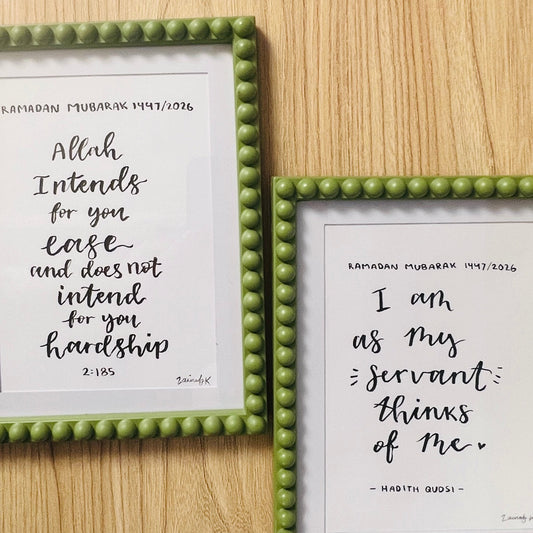 RAMADAN MUBARAK 1447/2026
Allah
Intends
for you
ease
and does not
intend
for you
hardship
2:185
ZainabK
RAMADAN MUBARAK 1447/2026
I am
as My
servant
thinks
of Me
- HADITH QUDSI -